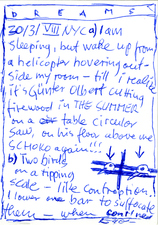 DREAMS
30/31 VIII NYC a) I am
sleeping, but wake up from
a helicopter hovering out-
side my room – till I realize
it's Günter Olbert cutting
firewood in THE SUMMER
on a table circular
saw, on his floor above me
SCHOKO again!!!
b) Two birds
on a tipping
scale – like contraption.
I lower one bar to suffocate
them – when